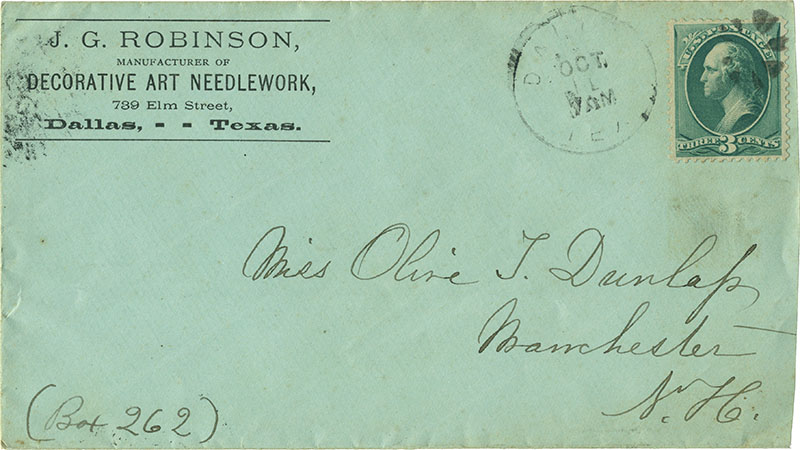 J. G. ROBINSON,
MANUFACTURER OF
DECORATIVE ART NEEDLEWORK,
739 Elm Street,
Dallas, - - Texas.
OCT.
11
AM
U.S. POSTAGE
THREE 3 CENTS
Miss Olive T. Dunlap
Manchester
N. H.
(Box 262)